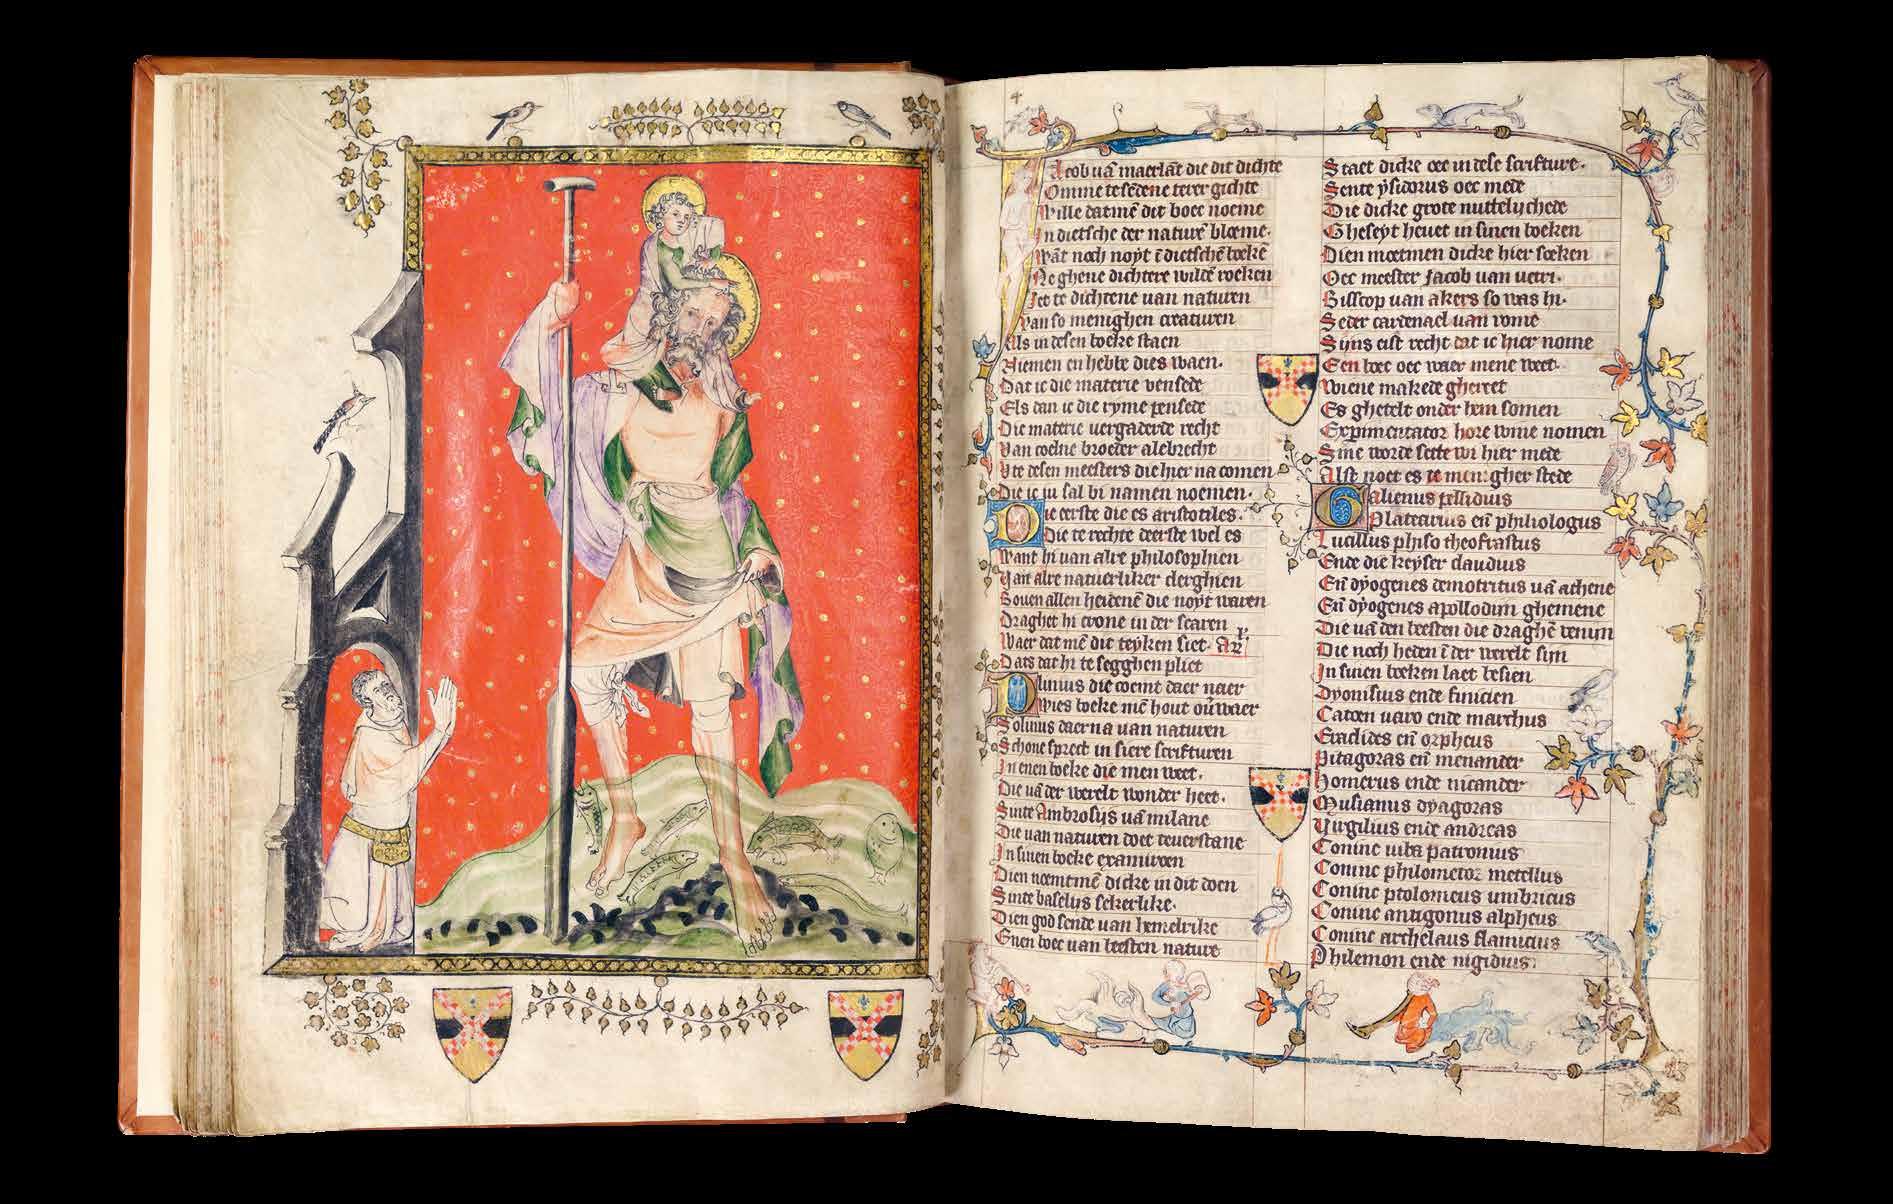 4
Jacob vā maerlāt die dit dichte
Omme te sēdene tere gichte
Wille datmē dit boec noeme
In dietsche der naturē bloeme.
Wāt noch noyt ī dietschē boekē
Ne ghene dichtere wildē roeken
Iet te dichtene van naturen
Van so menighen creaturen
Als in desen boeke staen
Niemen en hebbe dies waen.
Dat ic die materie vensede
Els dan ic die ryme pensede
Die materie vergaderde recht
Van coelne broeder alebrecht
Vte desen meesters die hier na comen
Die ic iu sal bi namen noemen.
Die eerste die es aristotiles.
Die te rechte deerste wel es
Want hi van alre philosophien
Van alre natuerliker clerghien
Boven allen heidenē die noyt waren
Draghet hi crone in der scaren
Waer dat mē dit teyken siet. Ar
Dats dat hi te segghen pliet
Plinius die coemt daer naer
Wies boeke mē hout ouwaer
Solinus daerna van naturen
Schone sprect in siere scrifturen
In enen boeke die men weet.
Die vā der werelt wonder heet.
Sinte Ambrosys vā milane
Die van naturen doet teverstane
In sinen boeke exameron
Dien neemtmē dicke in dit doen
Sinte baselys sekerlike.
Dien god sende van hemelrike
Enen boec van beesten nature
Staet dicke oec in dese scrifture.
Sente ysidorus oec mede
Die dicke grote nuttelychede
Gheseyt hevet in sinen boeken
Dien moetmen dicke hier soeken
Oec meester Jacob van vetri.
Bisscop van akers so was hi.
Seder cardenael van rome
Sijns eist recht dat ic hier nome
Een boec oec waer mene weet.
Wiene makede ghereet
Es ghetelt onder hem somen
Experimentator hore wine nomen
Sine worde sette wi hier mede
Alst noet es te menigher stede
Galienus pessidius
Platearius eñ philiologus
Lucillus phiso theofrastus
Ende die keyser claudius
Eñ dyogenes demotritus vā athene
Eñ dyogenes apollodim ghemene
Die vā den beesten die draghē venijn
Die noch heden ī der werelt sijn
In sinen boeken laet besien
Dyonisius ende finicien
Catoen varo ende marchus
Eraclides eñ orpheus
Pitagoras eñ menander
Homerus ende nicander
Musianus dyagoras
Virgilius ende andreas
Coninc iuba patronius
Coninc philometor metellus
Coninc ptolomeus umbricus
Coninc antigonus alpheus
Coninc archelaus flamicius
Philemon ende nigidius.